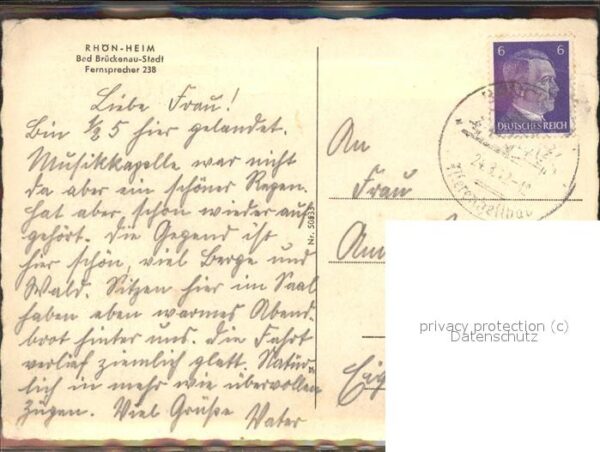 RHÖN-HEIM
Bad Brückenau-Stadt
Fernsprecher 238
Liebe Frau!
Bin ½ 5 hier gelandet.
Musikkapelle war nicht
da aber ein schöner Regen.
hat aber, schon wieder auf
gehört. Die Gegend ist
hier schön, viel Berge und
Wald. Sitzen hier im Saal
haben eben warmes Abend-
brot hinter uns. Die Fahrt
verlief ziemlich glatt. Natür-
lich in mehr wie übervollen
Zügen. Viel Grüße
Vater
Nr. 50833
6 6
DEUTSCHES REICH
An
Frau
privacy protection (c)
Datenschutz